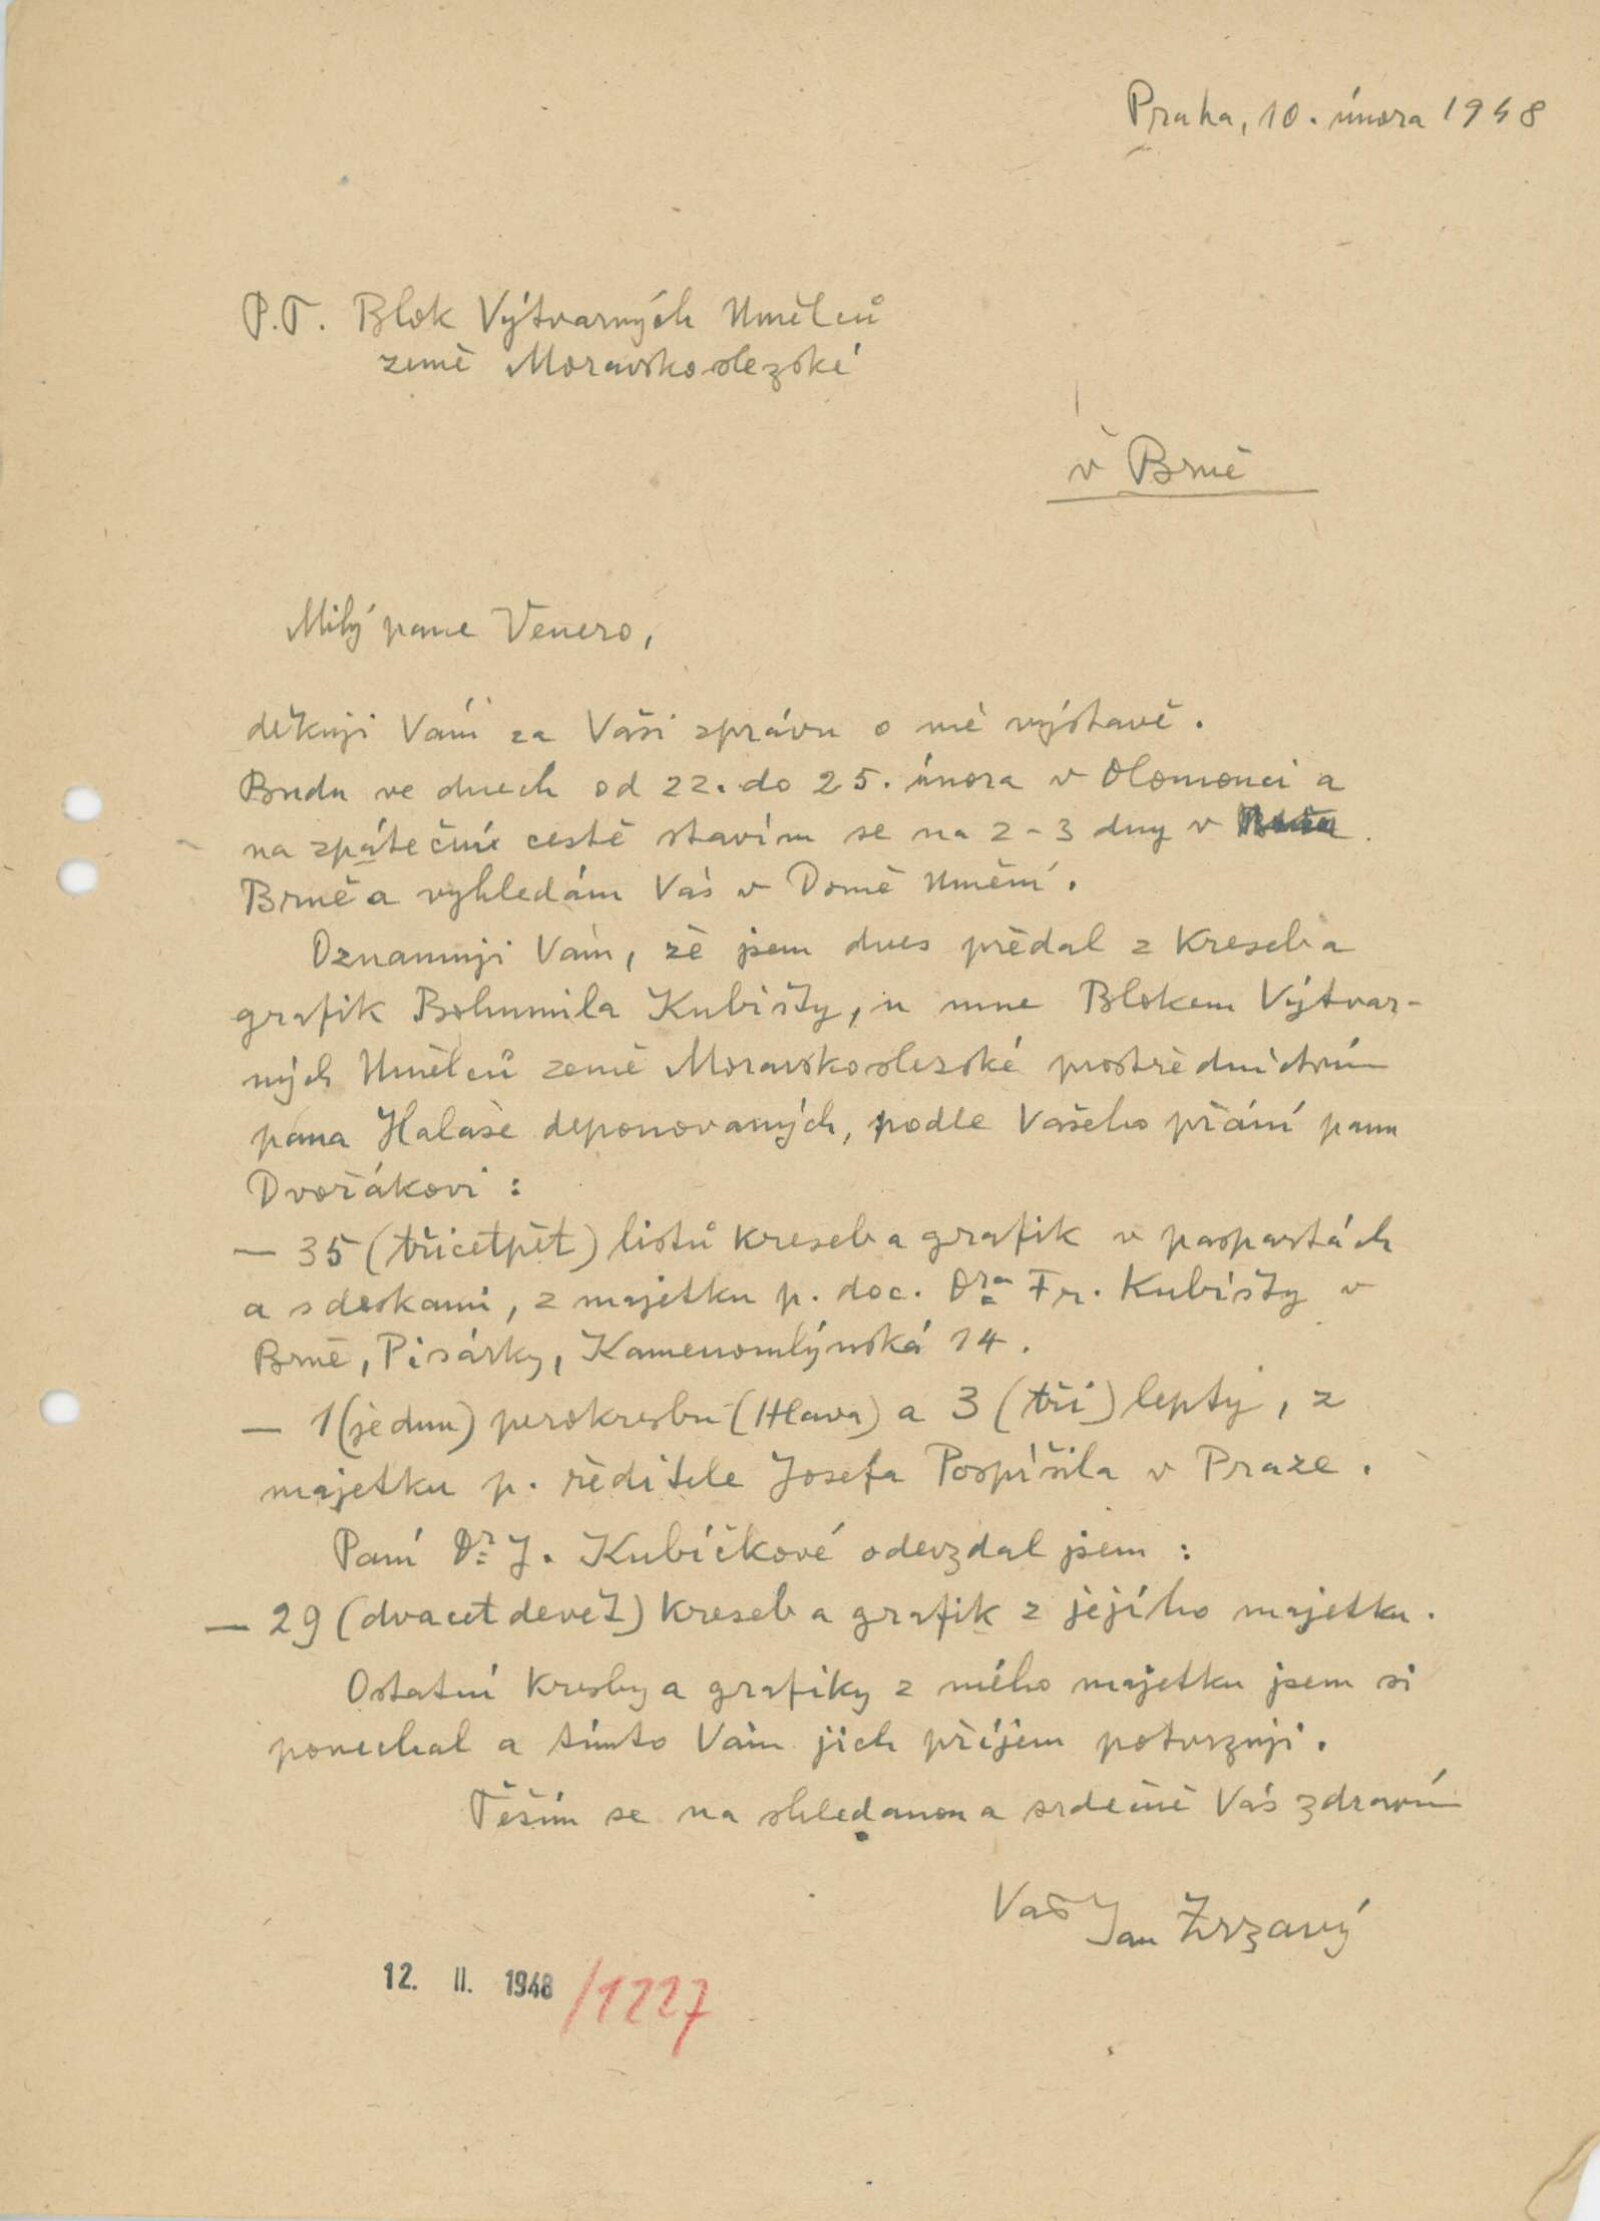 Praha, 10. února 1948
P.T. Blok Výtvarných Umělců
země Moravskoslezské
v Brně
Milý pane Venero,
děkuji Vám za Vaši zprávu o mé výstavě.
Budu ve dnech od 22. do 25. února v Olomouci a
na zpáteční cestě stavím se na 2-3 dny v
Brně a vyhledám Vás v Domě Umění.
Oznamuji Vám, že jsem dnes předal z kreseb a
grafik Bohumila Kubišty, u mne Blokem Výtvar-
ných Umělců země Moravskoslezské prostřednictvím
pana Halase deponovaných, podle Vašeho přání panu
Dvořákovi :
— 35 (třicetpět) listů kreseb a grafik v paspartách
a s deskami, z majetku p. doc. Dra Fr. Kubišty v
Brně, Pisárky, Kamenomlýnská 14.
— 1 (jednu) perokresbu (Hlava) a 3 (tři) lepty, z
majetku p. ředitele Josefa Pospíšila v Praze.
Paní Dr J. Kubíčkové odevzdal jsem :
— 29 (dvacet devět) kreseb a grafik z jejího majetku.
Ostatní kresby a grafiky z mého majetku jsem si
ponechal a tímto Vám jich příjem potvrzuji.
Těším se na shledanou a srdečně Vás zdravím
Váš Jan Zrzavý
12. II. 1948 /1227